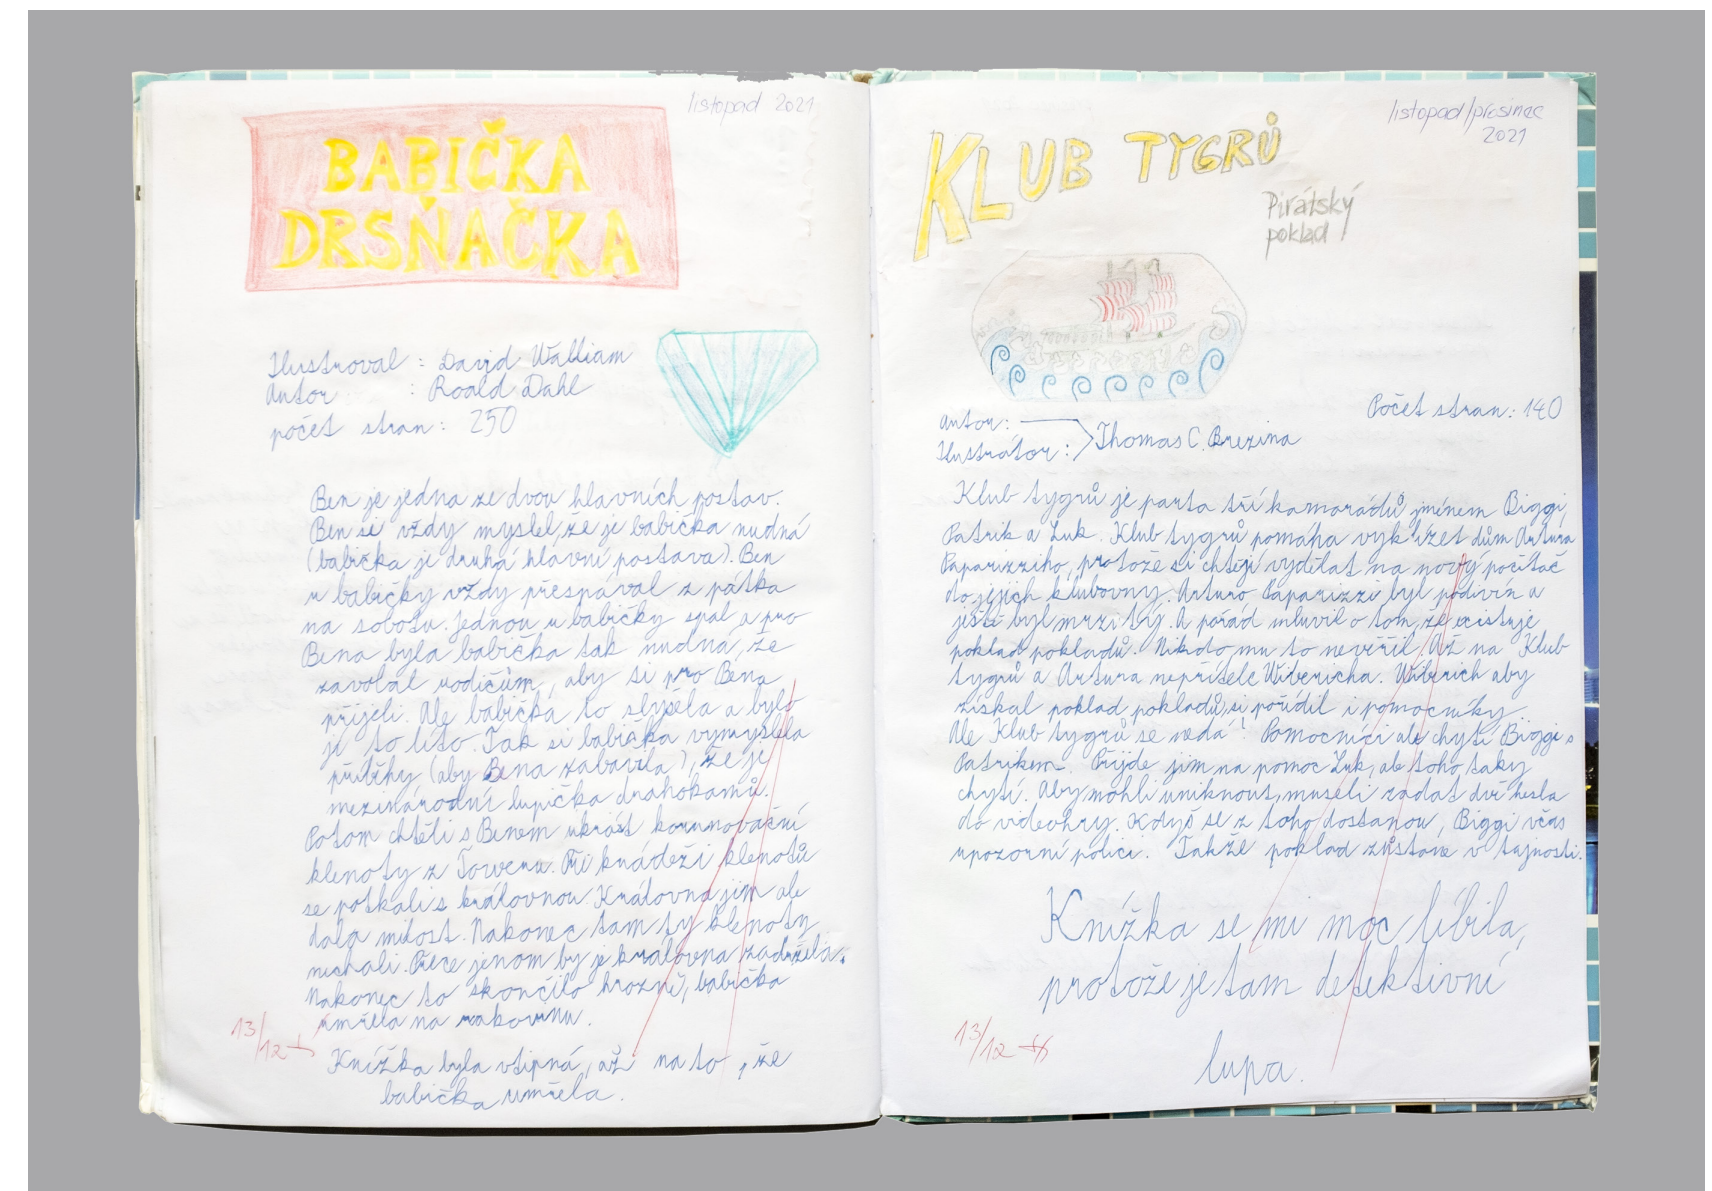 listopad 2021
BABIČKA
DRSŇAČKA
Ilustroval : David Walliam
Autor : Roald Dahl
počet stran : 250
Ben je jedna ze dvou hlavních postav.
Ben si vždy myslel, ze je babička nudná
(babička je druhá hlavní postava). Ben
u babičky vždy přespával z pátka
na sobotu. Jednou u babičky spal a pro
Bena byla babička tak nudná, že
zavolal rodičům, aby si pro Bena
přijeli. Ale babička to slyšela a bylo
jí to líto. Tak si babička vymyslela
příběhy (aby Bena zabavila), že je
mezinárodní lupička drahokamů.
Potom chtěli s Benem ukrást korunovační
klenoty z Toweru. Při krádeži klenotů
se potkali s královnou. Královna jim ale
dala milost. Nakonec tam ty klenoty
nechali. Přece jenom by je královna zadržela.
Nakonec to skončilo hrozně, babička
umřela na rakovinu.
Knížka byla vtipná, až na to, že
babička umřela.
13/12
listopad/prosinec
2021
KLUB TYGRŮ
Pirátský
poklad
Počet stran: 140
Autor:
Ilustrátor: Thomas C. Brezina
Klub tygrů je parta tří kamarádů jménem Biggi,
Patrik a Luk. Klub tygrů pomáha vyklízet dům Artura
Paparizziho, protože si chtějí vydělat na nový počítač
do jejich klubovny. Arturo Paparizzi byl podivín a
ještě byl mrzitý. A pořád mluvil o tom, ze existuje
poklad pokladů. Nikdo mu to nevěřil. Až na Klub
tygrů a Artura nepřítele Wibericha. Wiberich aby
získal poklad pokladů, si pořídil i pomocníky.
Ale Klub tygrů se nedá! Pomocníci ale chytí Biggi s
Patrikem. Přijde jim na pomoc Luk, ale toho taky
chytí. Aby mohli uniknout, museli zadat dvě hesla
do videohry. Když se z toho dostanou, Biggi včas
upozorní polici. Takže poklad zůstane v tajnosti.
Knížka se mi moc líbila,
protože je tam detektivní
lupa.
13/12